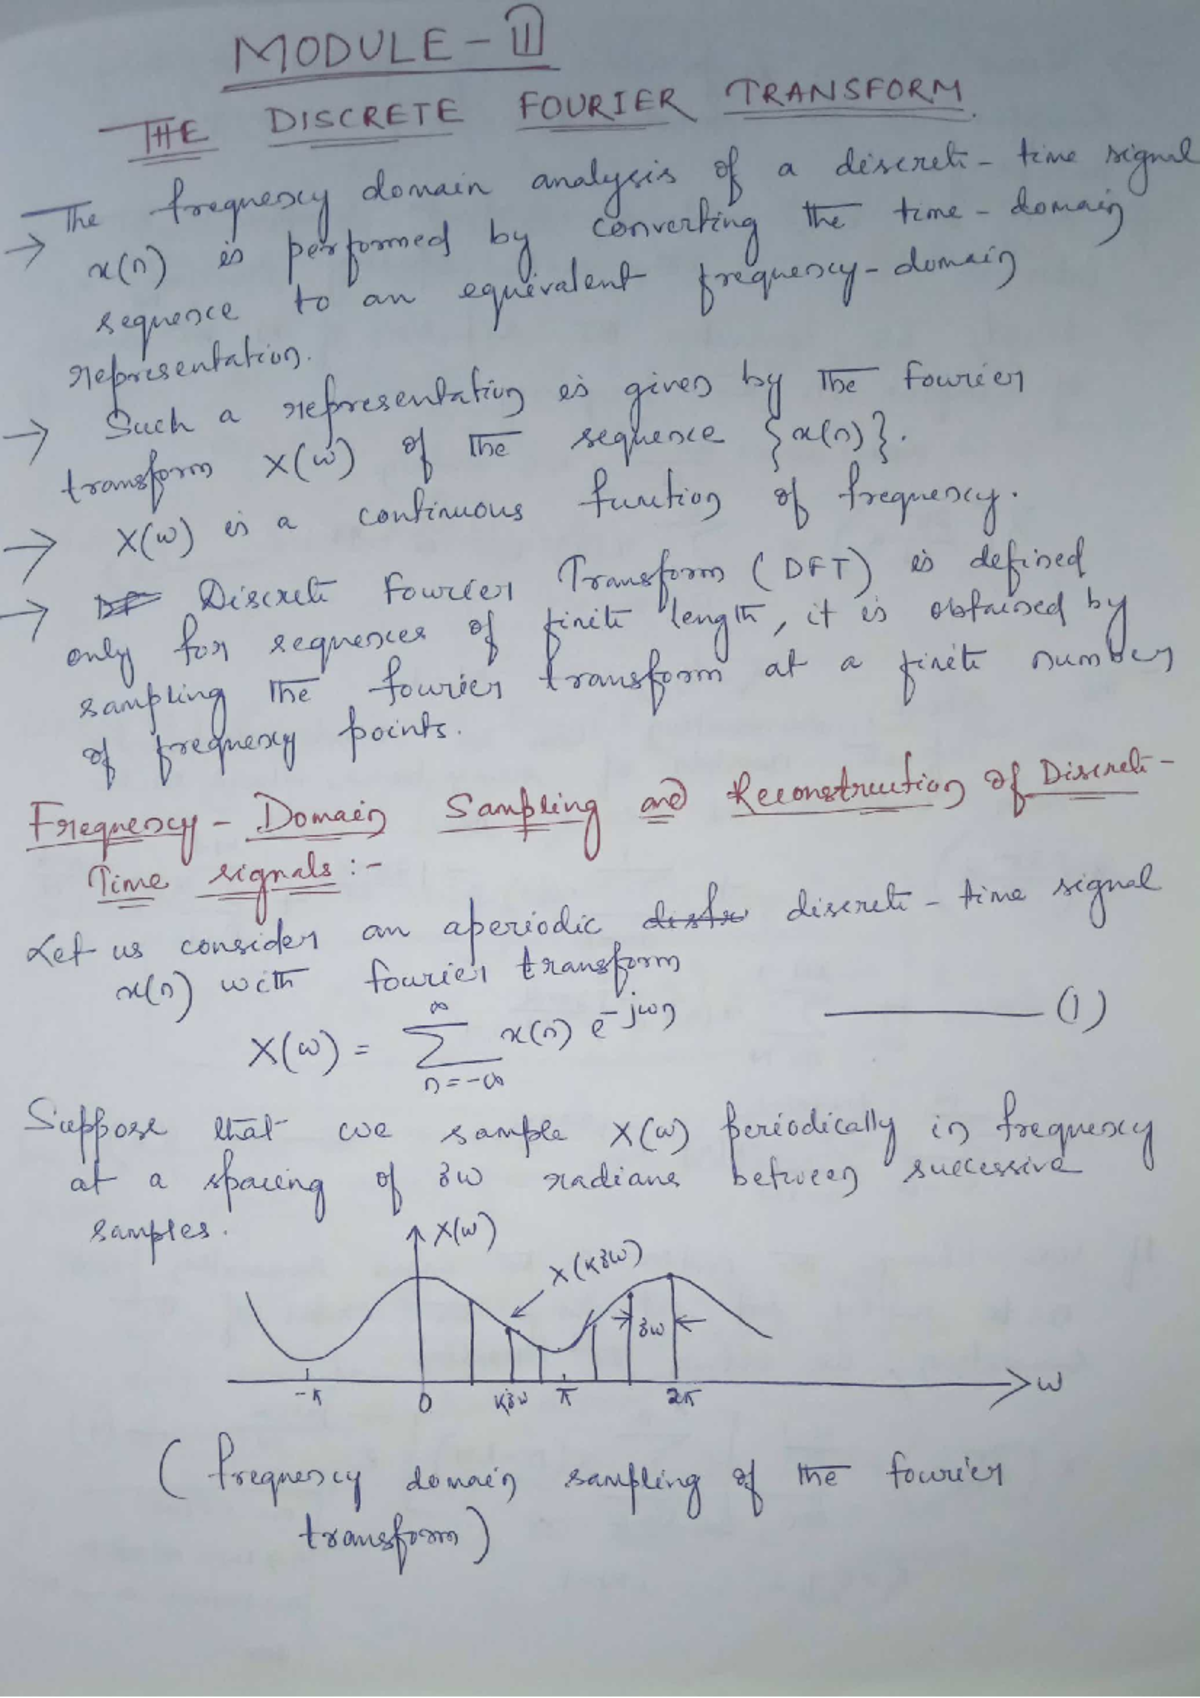 MODULE - II
THE DISCRETE FOURIER TRANSFORM.
→ The frequency domain analysis of a discrete-time signal
x(n) is performed by converting the time-domain
sequence to an equivalent frequency-domain
representation.
→ Such a representation is given by the Fourier
transform X(ω) of the sequence {x(n)}.
→ X(ω) is a continuous function of frequency.
→ Discrete Fourier Transform (DFT) is defined
only for sequences of finite length, it is obtained by
sampling the fourier transform at a finite number
of frequency points.
Frequency-Domain Sampling and Reconstruction of Discrete-
Time signals:-
Let us consider an aperiodic discrete-time signal
x(n) with fourier transform
X(ω) = ∞∑n=-∞ x(n) e^-jωn ———— (1)
Suppose that we sample X(ω) periodically in frequency
at a spacing of δω radians between successive
samples.
X(ω)
X(kδω)
δω
-π 0 kδω π 2π ω
(frequency domain sampling of the fourier
transform)